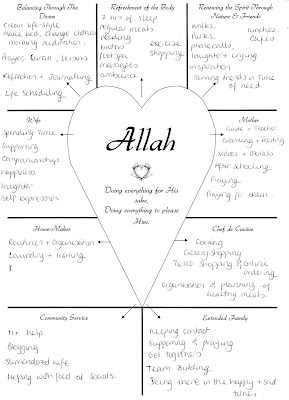 Balancing Through The Divine
clean life-style
make bed, change clothes
morning meditation.
Prayer, Quran, lessons
Reflection + Journalling
Life Scheduling
Refreshment of the Body
7 hrs of sleep
regular meals
reading
baths
footspa
massages
ambience
exercise
shopping
Renewing the Spirit Through Nature & Friends
walks,
Parks,
phonecalls,
laughter + crying
inspiration
lunches
Cafes
Being friends in time of need.
Wife
Spending time
Supporting
Companionship
Happiness
laughter
Self expression
Allah
Doing everything for His sake,
Doing everything to please Him.
Mother
Guide + Teacher
Grooming + Feeding
Values + Morals
After schooling
Playing
Praying for them.
Home-Maker
Routines + Organisation
Laundry + Ironing
Chef de Cuisine
Cooking
Grocery Shopping
Tesco shopping + online ordering
Organisation & planning of healthy meals
Community Service
11+ help
Blogging
Surrendered wife
Helping with food at socials
Extended Family
Keeping contact
Supporting & praying
Get togethers
Team Building
Being there in the happy + sad times